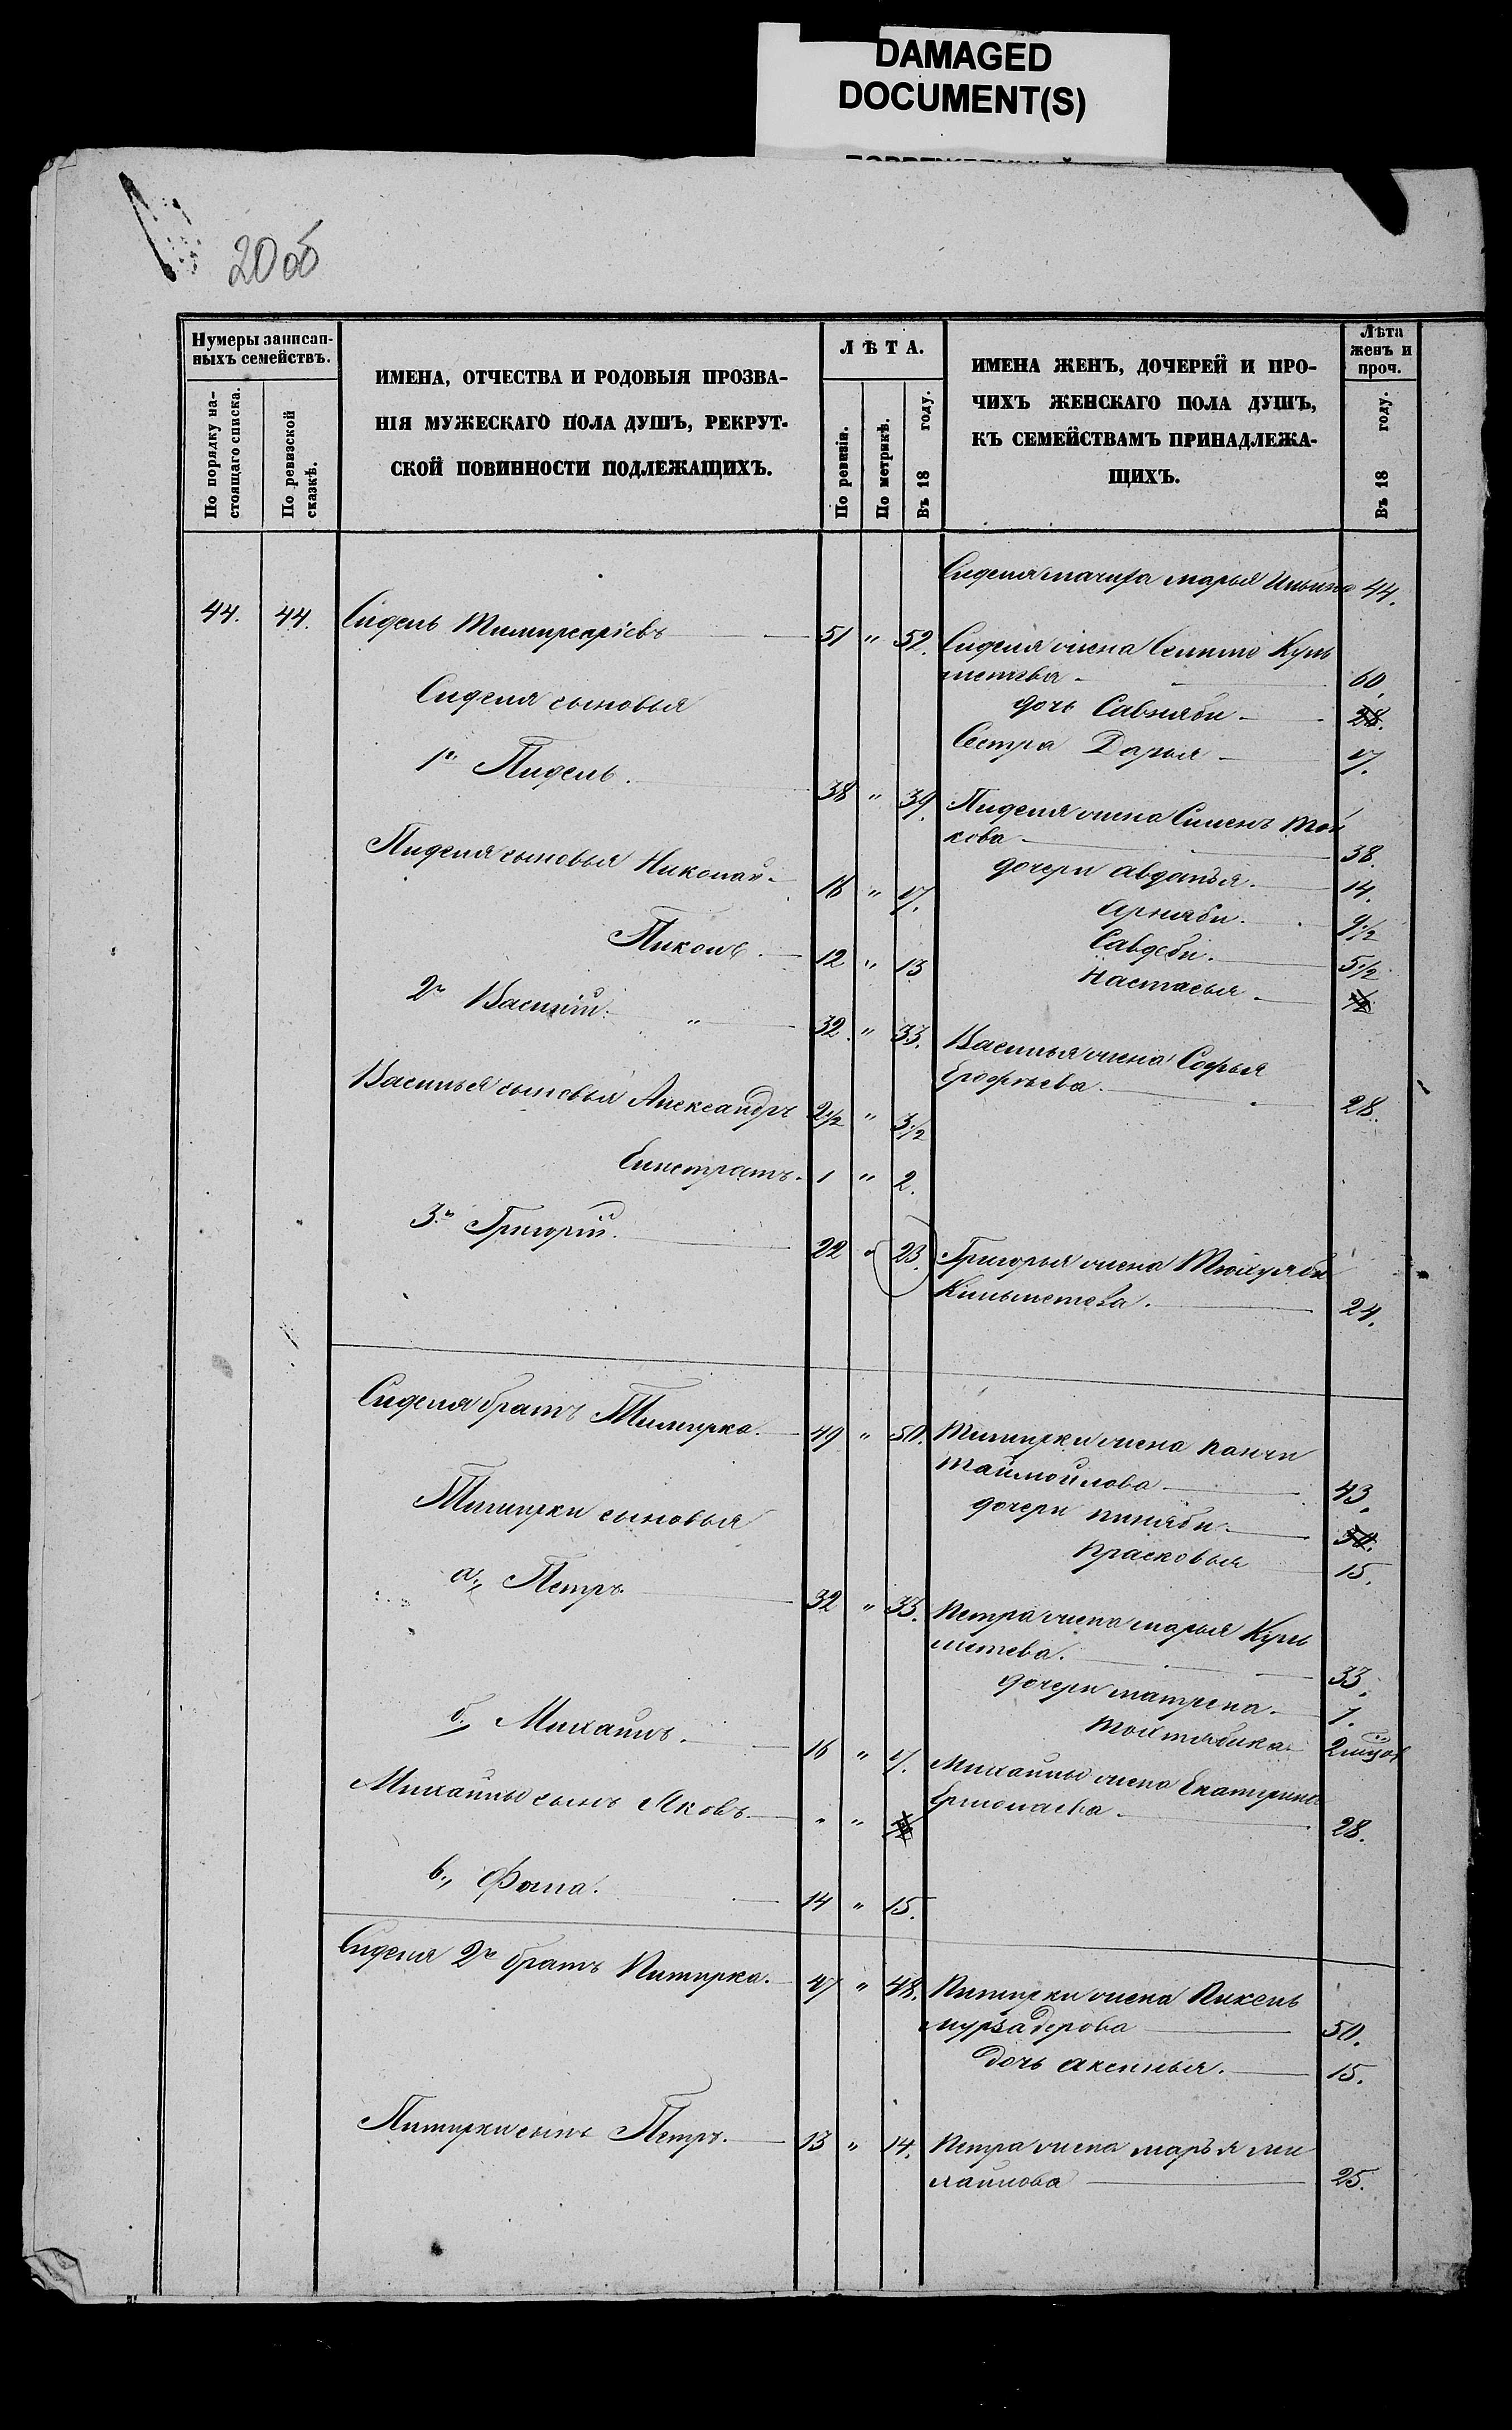 DAMAGED
DOCUMENT(S)
20 об
Нумеры записан-
ныхъ семействъ.
По порядку на-
стоящаго списка.
По ревизской
сказкѣ.
ИМЕНА, ОТЧЕСТВА И РОДОВЫЯ ПРОЗВА-
НІЯ МУЖЕСКАГО ПОЛА ДУШЪ, РЕКРУТ-
СКОЙ ПОВИННОСТИ ПОДЛЕЖАЩИХЪ.
ЛѢТА.
По ревизіи.
По метрикѣ.
Въ 18 году.
ИМЕНА ЖЕНЪ, ДОЧЕРЕЙ И ПРО-
ЧИХЪ ЖЕНСКАГО ПОЛА ДУШЪ,
КЪ СЕМЕЙСТВАМЪ ПРИНАДЛЕЖА-
ЩИХЪ.
Лѣта
женъ и
проч.
Въ 18 году.
Сиделя мачиха марья Ильина 44.
44. 44. Сидель 51 " 52. Сиделя жена Куль
метева 60.
Сиделя сыновья
дочь Савняби 38.
Сестра Дарья 17.
1й Пидель. 38 " 39. Пиделя жена
кова 38.
Пиделя сыновья Николай 16 " 17.
дочери авдатья. 14.
Арняби. 9 1/2
Пиколъ. 12 " 13
Савдеби. 5 1/2
Настасья 1/2
2й Василій. " 32. " 33. Василья жена Софья
Ерофѣева. 28.
Василья сыновья Александръ 2 1/2 " 3 1/2
Елистратъ. 1 " 2.
3й Григорій. 22 " 23. Григорья жена
Кильметева. 24.
Сиделя братъ Тимирка. 49 " 50. Тимирки жена панчи
таймойлова 43.
Тимирки сыновья
дочери пиняби 30.
прасковья 15.
а., Петръ. 32 " 33. Петра жена марья Куль
метева. 33.
дочери матрена. 7.
б., Михайлъ. 16 " 17. Михайлы жена Екатерина
Ермолаева 28.
Михайлы сынъ Яковъ " "
в., Фома. 14 " 15.
Сиделя 2й братъ Питирка. 47 " 48. Питирки жена Пикень
мурзадерова 50.
дочь аксинья. 15.
Питирки сынъ Петръ. 13 " 14. Петра жена марья ми
хайлова 25.